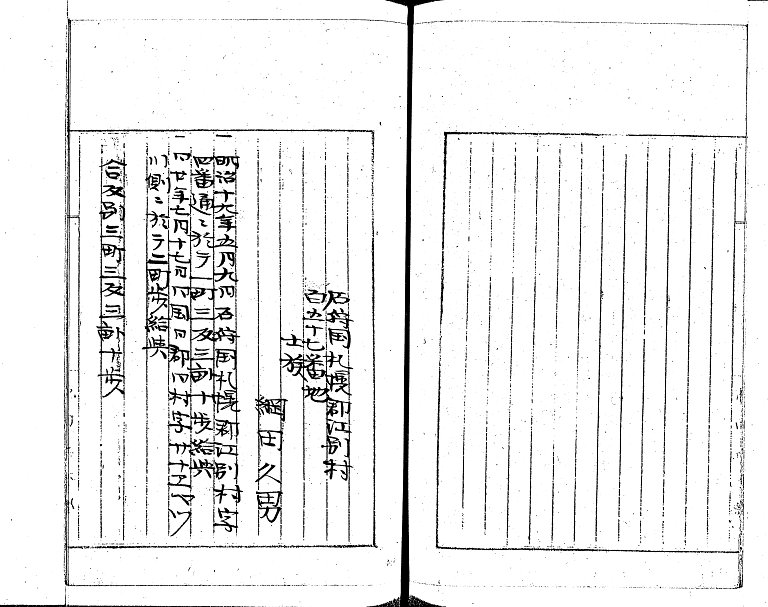 石狩国札幌郡江別村
百五十七番地
士族
綱田久男
一明治十九年五月九日石狩国札幌郡江別村字
四番通ニ於テ一町三反三畝十歩給与
一同廿年七月十七日同国同郡同村字
川側ニ於テ二町歩給与
合反別三町三反三畝十歩